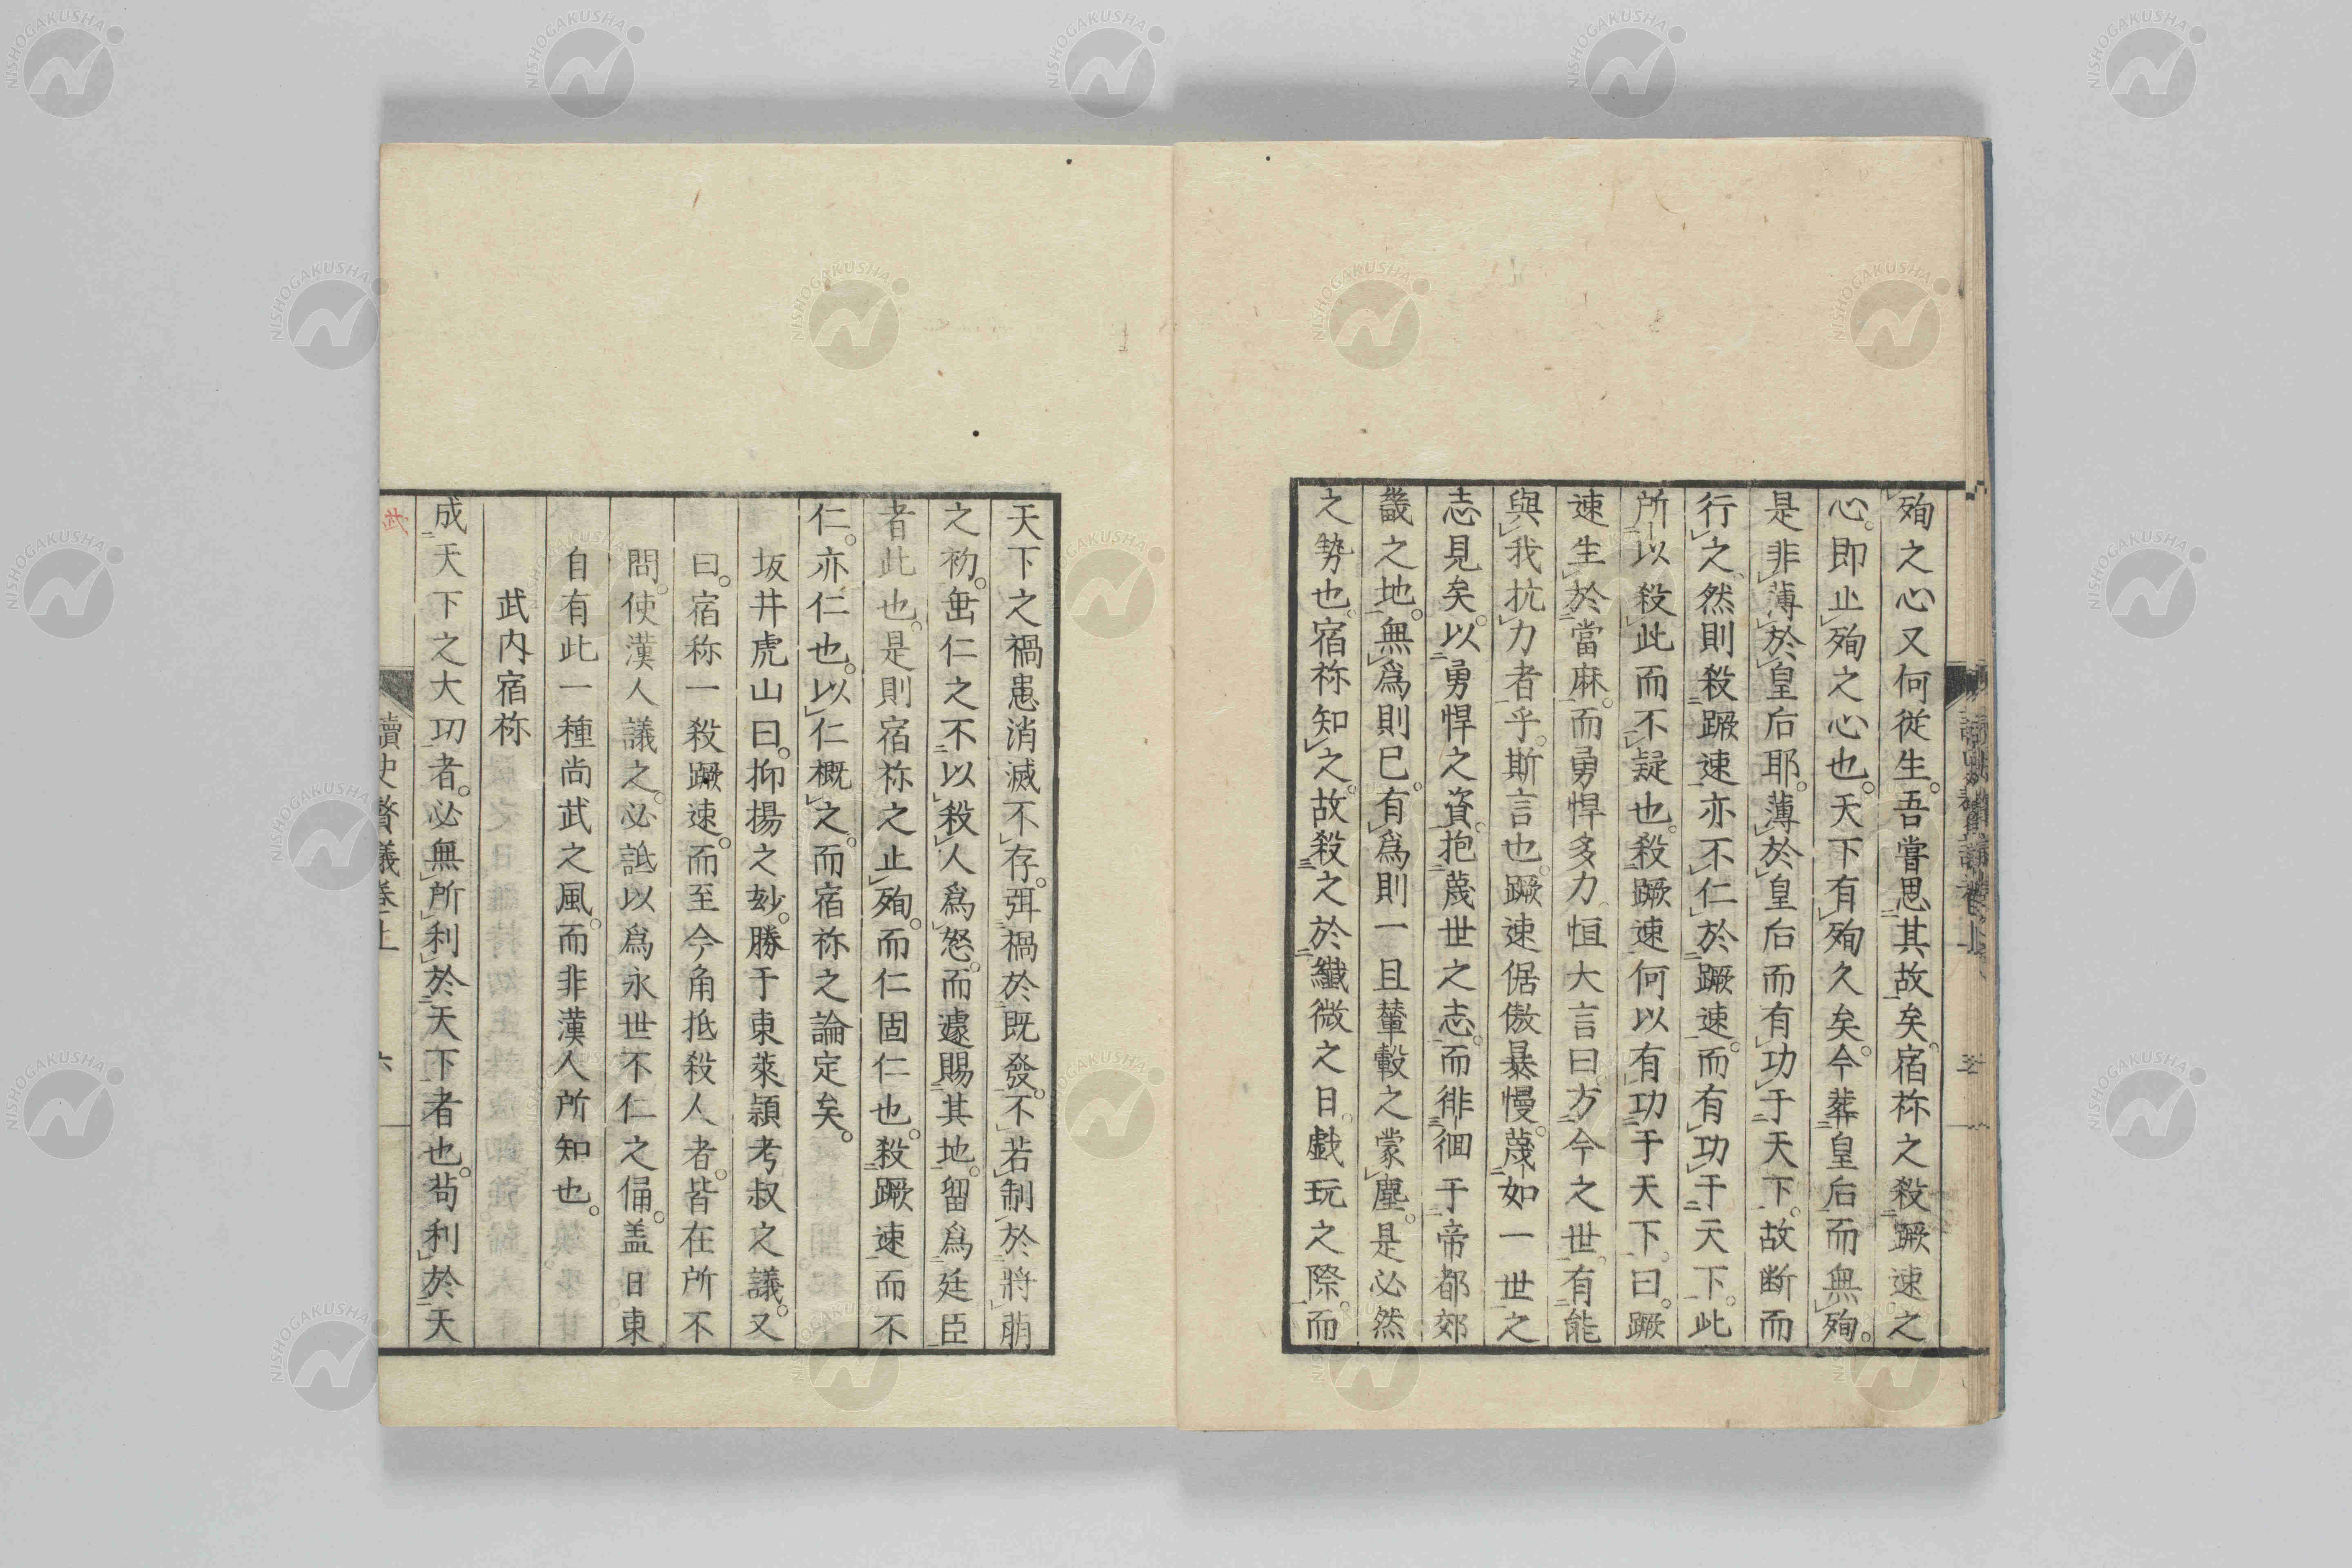 殉之心又何從生。吾嘗思其故矣。宿祢之殺蹶速之
心。即止殉之心也。天下有殉久矣。今葬皇后而無殉。
是非薄於皇后耶。薄於皇后而有功于天下。故断而
行之。然則殺蹶速亦不仁於蹶速。而有功于天下。此
所以殺此而不疑也。殺蹶速何以有功于天下。曰。蹶
速生於當麻。而勇悍多力。恒大言曰。方今之世。有能
與我抗力者乎。斯言也。蹶速倨傲暴慢。蔑如一世之
志見矣。以勇悍之資。抱蔑世之志。而徘徊于帝都郊
畿之地。無為則已。有為則一旦輦轂之蒙塵。是必然
之勢也。宿祢知之。故殺之於纎微之日。戯玩之際。而
天下之禍患消滅不存。弭禍於既發。不若制於將萠
之初。畄仁之不以殺人為怒。而遽賜其地。留為廷臣
者此也。是則宿祢之止殉。而仁固仁也。殺蹶速而不
仁。亦仁也。以仁概之。而宿祢之論定矣。
坂井虎山曰。抑揚之玅。勝于東萊頴考叔之議。又
曰。宿祢一殺蹶速。而至今角抵殺人者。皆在所不
問。使漢人議之。必詆以為永世不仁之俑。盖日東
自有此一種尚武之風。而非漢人所知也。
武内宿祢
成天下之大功者。必無所利於天下者也。苟利於天
讀史贅議卷上
六
武